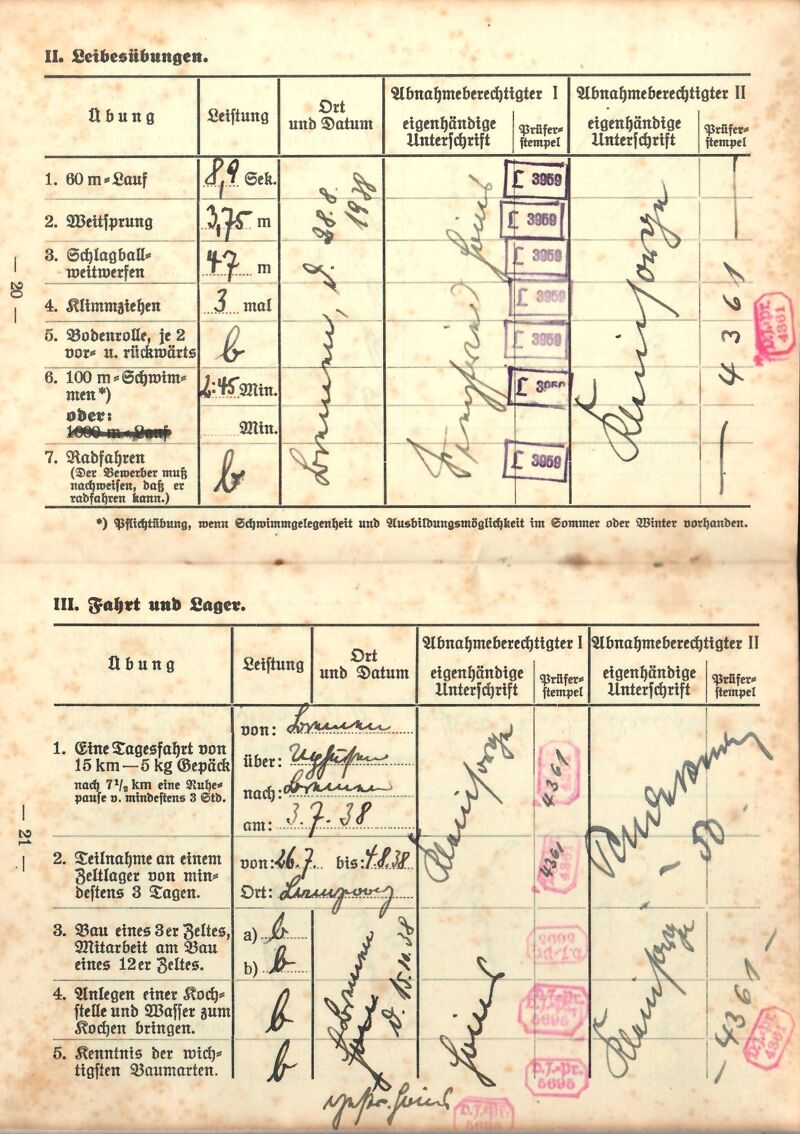 II. Leibesübungen.
Übung
Leistung
Ort
und Datum
Abnahmeberechtigter I
eigenhändige
Unterschrift
Prüfer-
stempel
Abnahmeberechtigter II
eigenhändige
Unterschrift
Prüfer-
stempel
1. 60 m-Lauf
8,9 Sek.
2. Weitsprung
3,75 m
3. Schlagball-
weitwerfen
47 m
4. Klimmziehen
3 mal
5. Bodenrolle, je 2
vor- u. rückwärts
b
6. 100 m-Schwim-
men *)
2:45 Min.
oder:
1000 m-Lauf
Min.
7. Radfahren
(Der Bewerber muß
nachweisen, daß er
radfahren kann.)
b
Bremen, d. 28.8.
1938
L 3959
L 3959
L 3959
L 3959
L 3959
L 3959
L 3959
Kleinsorge
— 4361 —
D.J.-Pr.
4361
— 20 —
*) Pflichtübung, wenn Schwimmgelegenheit und Ausbildungsmöglichkeit im Sommer oder Winter vorhanden.
III. Fahrt und Lager.
Übung
Leistung
Ort
und Datum
Abnahmeberechtigter I
eigenhändige
Unterschrift
Prüfer-
stempel
Abnahmeberechtigter II
eigenhändige
Unterschrift
Prüfer-
stempel
1. Eine Tagesfahrt von
15 km — 5 kg Gepäck
nach 7 1/2 km eine Ruhe-
pause v. mindestens 3 Std.
von: Bremen
über:
nach: Bremen
am: 3.7.38
2. Teilnahme an einem
Zeltlager von min-
destens 3 Tagen.
von: 26.7. bis: 4.8.38
Ort:
Kleinsorge
4361
4361
3. Bau eines 3er Zeltes,
Mitarbeit am Bau
eines 12er Zeltes.
a) b
b) b
4. Anlegen einer Koch-
stelle und Wasser zum
Kochen bringen.
b
5. Kenntnis der wich-
tigsten Baumarten.
b
Bremen
d. 15.10.38
D.J.-Pr.
5695
D.J.-Pr.
5695
D.J.-Pr.
5695
Kleinsorge
— 4361 —
D.J.-Pr.
4361
D.J.-Pr.
5695
— 21 —